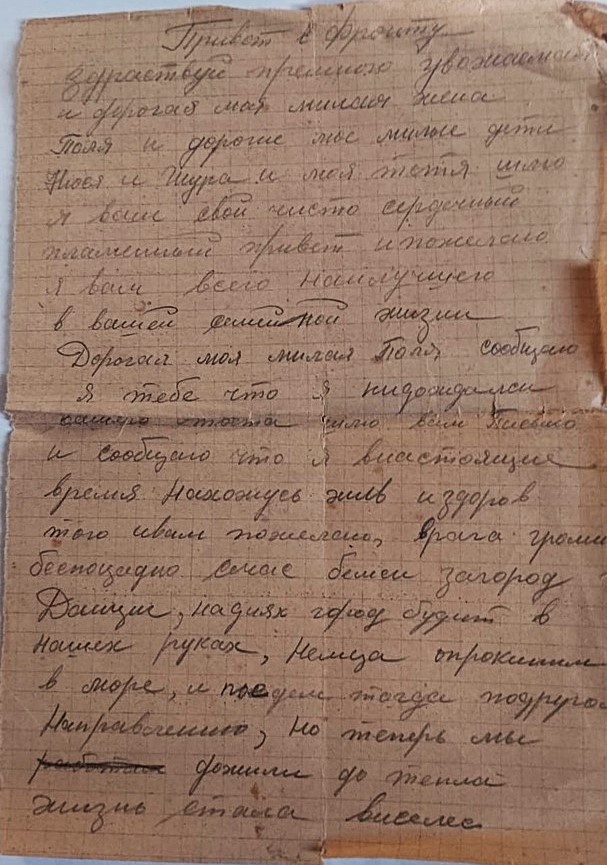 Привет с фронту
здраствуй премного уважаемая
и дорогая моя милая жена
Поля и дорогие мое милые дети
Нюся и Шура и моя тетя шлю
я вам свой чисто сердечный
пламенный привет ипожелаю
я вам всего наилучшего
в вашей семейной жизни
Дорогая моя милая Поля, сообщаю
я тебе что я нидождался
вашего шлю вам Письмо
и сообщаю что я внастоящие
время нахожусь жив издоров
того ивам пожелаю, врага громи
беспощадно счас бемси загород
Данциг, наднях город будит в
нашех руках, немца опрокиним
в море, и поедем тогда подругом
Направлению, но теперь мы
работаи дожили до тепла
жизнь стала виселее